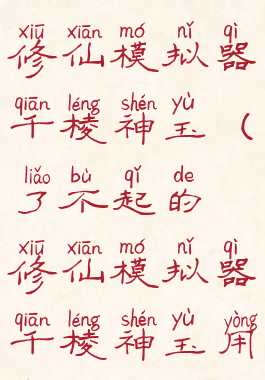 xiū xiān mó nǐ qì
修仙模拟器
qiān léng shén yù
千棱神玉（
liǎo bù qǐ de
了不起的
xiū xiān mó nǐ qì
修仙模拟器
qiān léng shén yù yòng
千棱神玉用